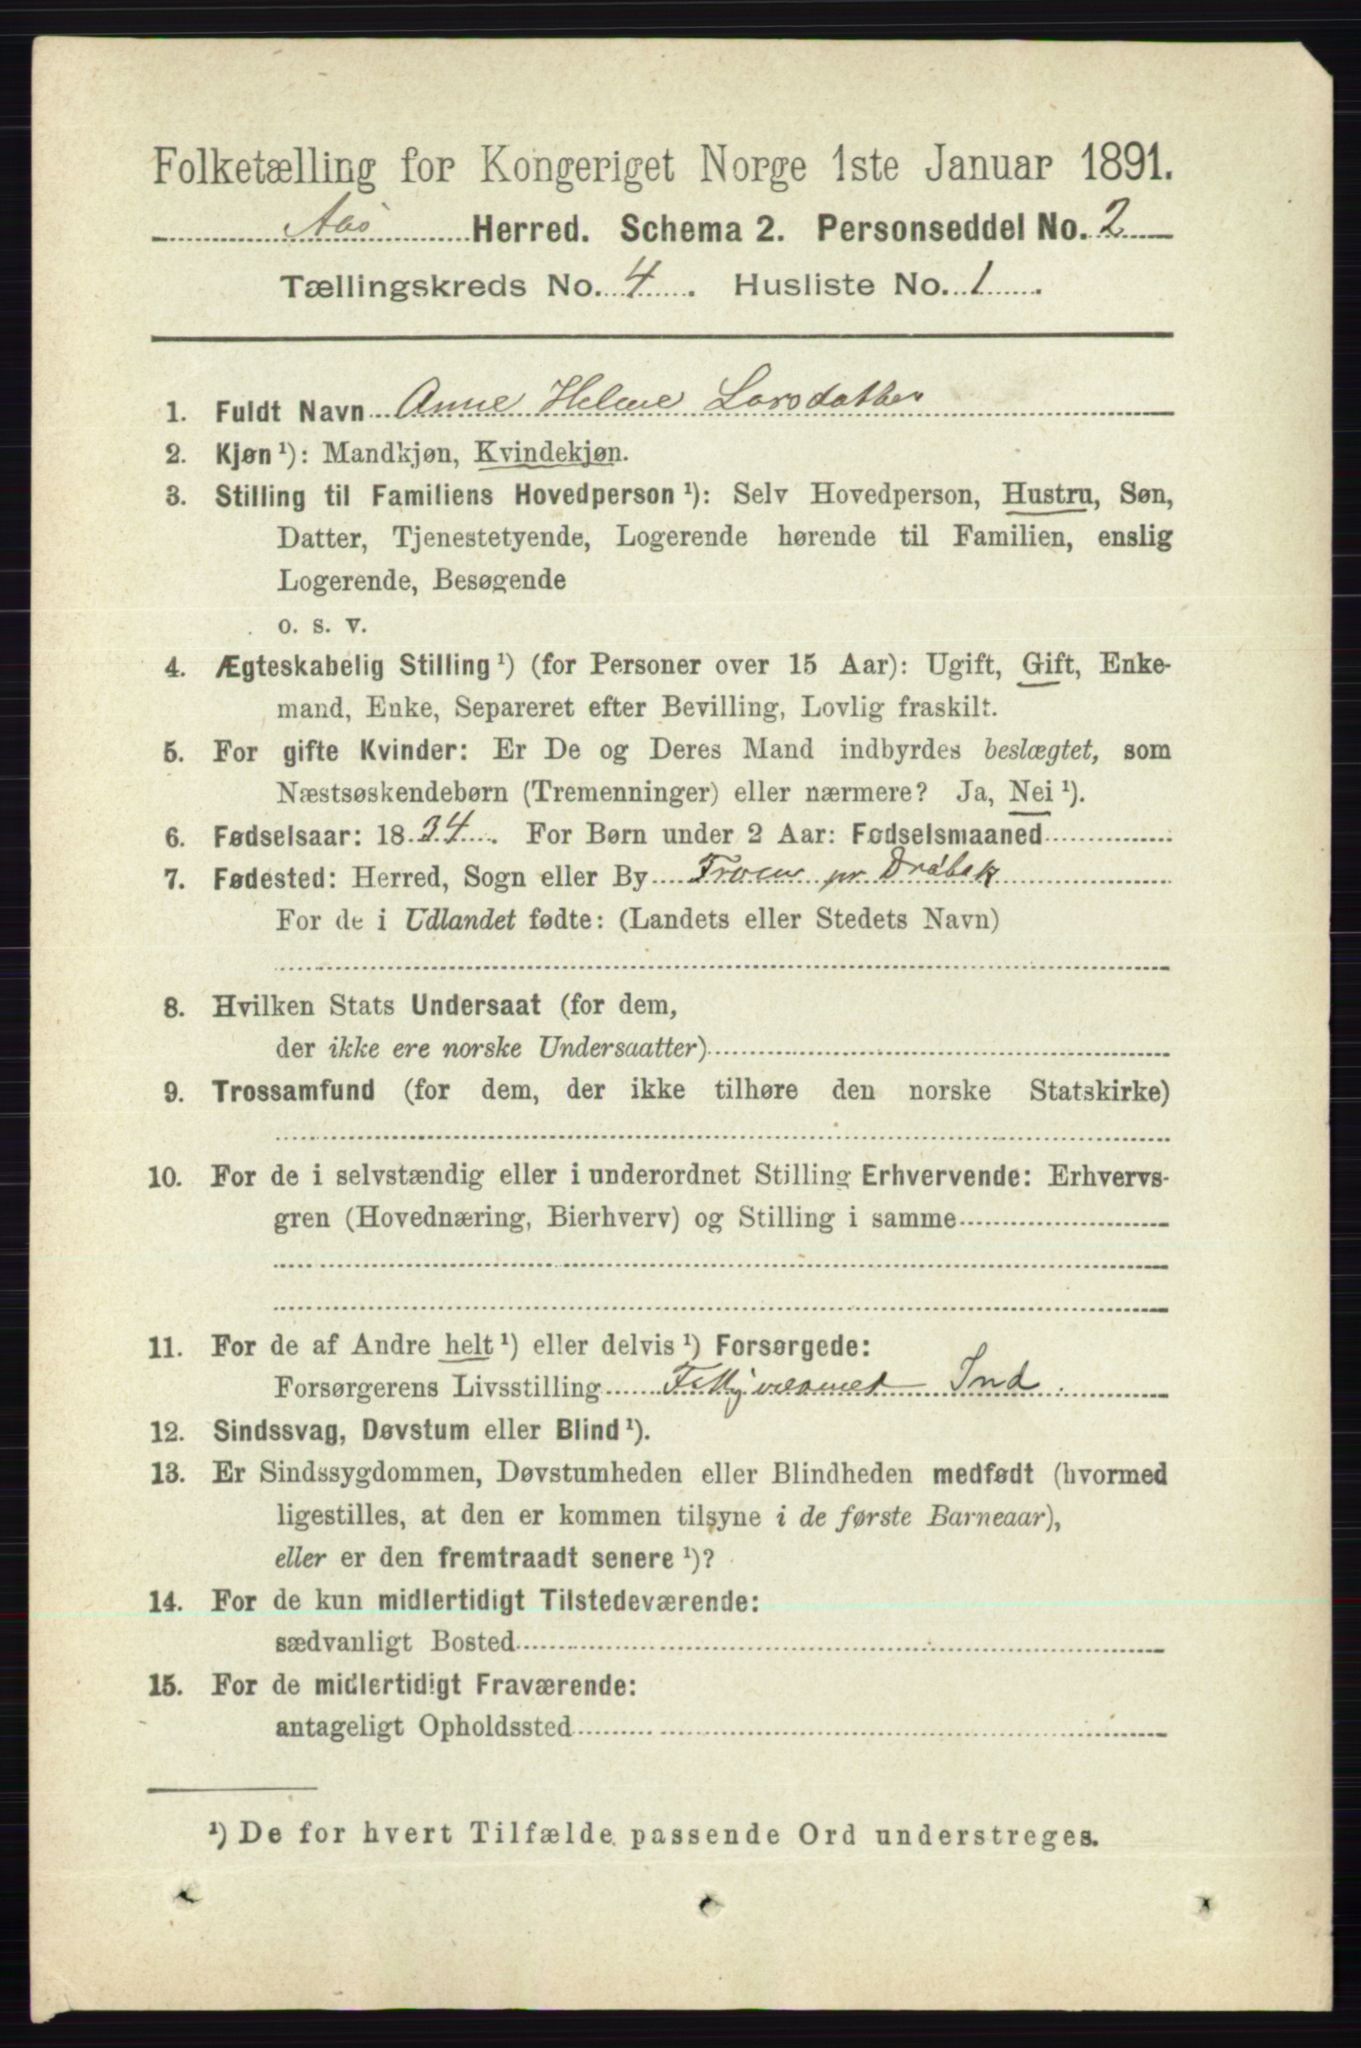 Folketælling for Kongeriget Norge 1ste Januar 1891.
Aas Herred. Schema 2. Personseddel No. 2
Tællingskreds No. 4. Husliste No. 1.
1. Fuldt Navn Anne Helene Larsdatter
2. Kjøn ¹): Mandkjøn, Kvindekjøn.
3. Stilling til Familiens Hovedperson ¹): Selv Hovedperson, Hustru, Søn,
Datter, Tjenestetyende, Logerende hørende til Familien, enslig
Logerende, Besøgende
o. s. v.
4. Ægteskabelig Stilling ¹) (for Personer over 15 Aar): Ugift, Gift, Enke-
mand, Enke, Separeret efter Bevilling, Lovlig fraskilt.
5. For gifte Kvinder: Er De og Deres Mand indbyrdes beslægtet, som
Næstsøskendebørn (Tremenninger) eller nærmere? Ja, Nei ¹).
6. Fødselsaar: 1834. For Børn under 2 Aar: Fødselsmaaned
7. Fødested: Herred, Sogn eller By Froen pr Drøbak
For de i Udlandet fødte: (Landets eller Stedets Navn)
8. Hvilken Stats Undersaat (for dem,
der ikke ere norske Undersaatter)
9. Trossamfund (for dem, der ikke tilhøre den norske Statskirke)
10. For de i selvstændig eller i underordnet Stilling Erhvervende: Erhvervs-
gren (Hovednæring, Bierhverv) og Stilling i samme
11. For de af Andre helt ¹) eller delvis ¹) Forsørgede:
Forsørgerens Livsstilling Ind
12. Sindssvag, Døvstum eller Blind ¹).
13. Er Sindssygdommen, Døvstumheden eller Blindheden medfødt (hvormed
ligestilles, at den er kommen tilsyne i de første Barneaar),
eller er den fremtraadt senere ¹)?
14. For de kun midlertidigt Tilstedeværende:
sædvanligt Bosted
15. For de midlertidigt Fraværende:
antageligt Opholdssted
¹) De for hvert Tilfælde passende Ord understreges.